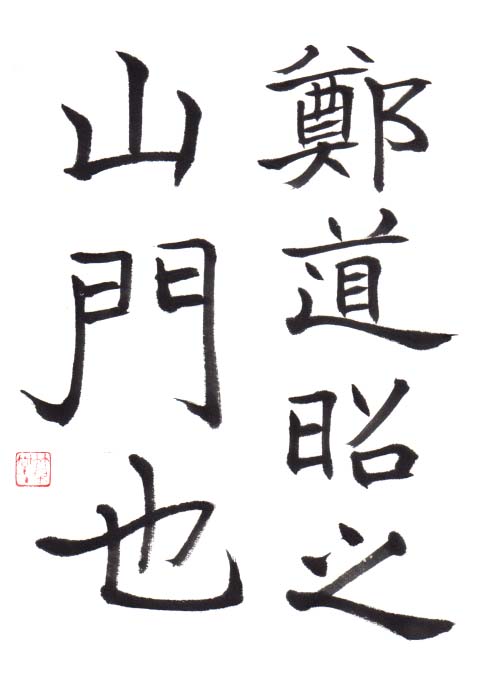 鄭道昭之
山門也